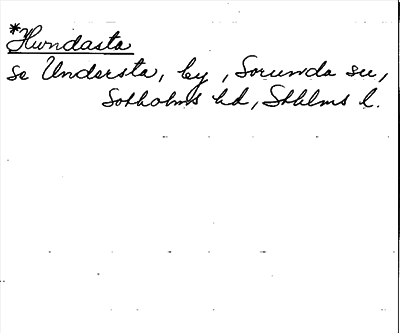 *Hundasta
se Understa, by, Sorunda sn,
Sotholms hd, Sthlms l.